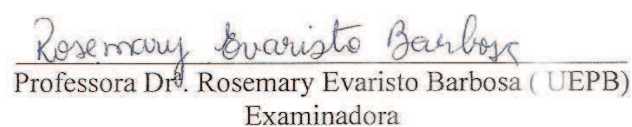 Rosemary Evaristo Barbosa
Professora Drª. Rosemary Evaristo Barbosa ( UEPB)
Examinadora